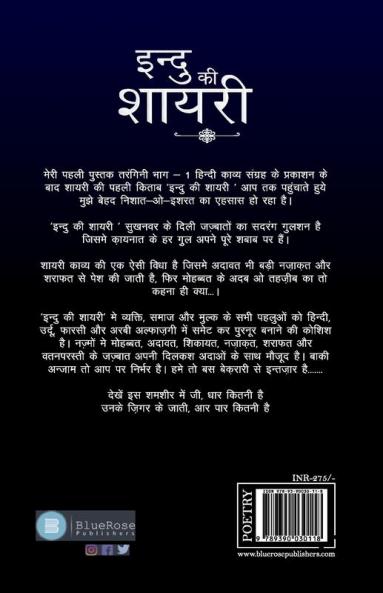 इन्दु की
शायरी
मेरी पहली पुस्तक तरंगिनी भाग – 1 हिन्दी काव्य संग्रह के प्रकाशन के
बाद शायरी की पहली किताब 'इन्दु की शायरी ' आप तक पहुंचाते हुये
मुझे बेहद निशात–ओ–इशरत का एहसास हो रहा है।
'इन्दु की शायरी ' सुखनवर के दिली जज़्बातों का सदरंग गुलशन है
जिसमे क़ायनात के हर गुल अपने पूरे शबाब पर हैं।
शायरी काव्य की एक ऐसी विधा है जिसमे अदावत भी बड़ी नज़ाक़त और
शराफत से पेश की जाती है, फिर मोहब्बत के अदब ओ तहज़ीब का तो
कहना ही क्या...।
'इन्दु की शायरी' मे व्यक्ति, समाज और मुल्क के सभी पहलुओं को हिन्दी,
उर्दू, फारसी और अरबी अल्फाज़गी में समेट कर पुरनूर बनाने की कोशिश
है। नज़्मों मे मोहब्बत, अदावत, शिकायत, नजाक़त, शराफत और
वतनपरस्ती के जज़्बात अपनी दिलकश अदाओं के साथ मौजूद है। बाकी
अन्जाम तो आप पर निर्भर है। हमे तो बस बेक़रारी से इन्तज़ार है.......
देखें इस शमशीर में जी, धार कितनी है
उनके ज़िगर के जाती, आर पार कितनी है
INR-275/-
POETRY
9 789390 030118
BlueRose
Publishers
www.bluerosepublishers.com